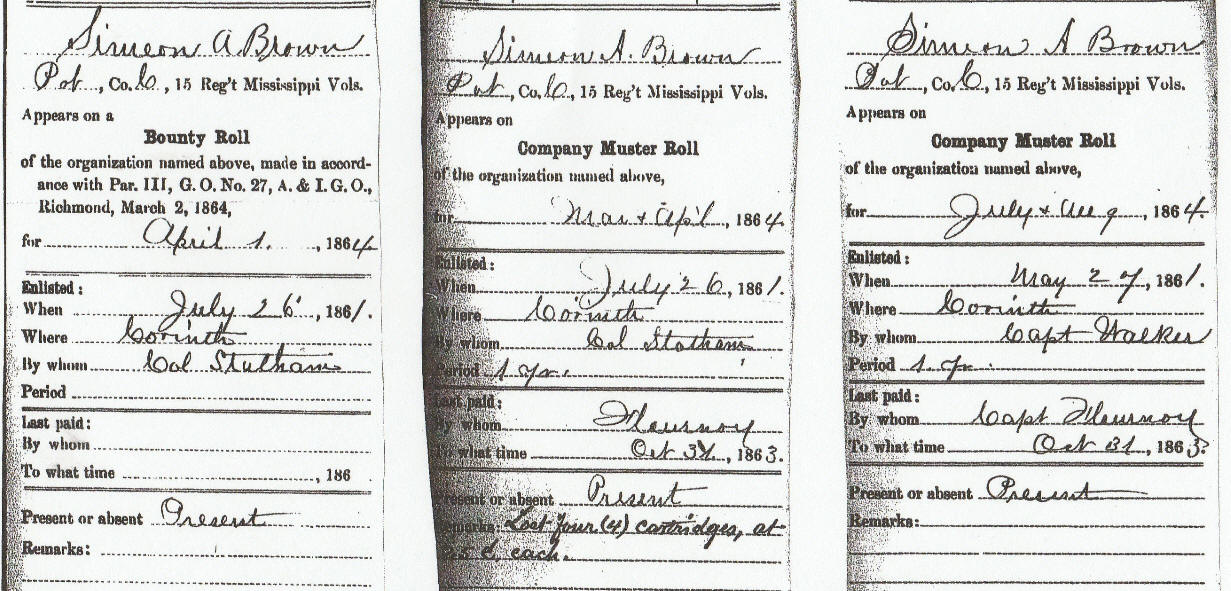 Simeon A Brown
Pvt, Co. C, 15 Reg't Mississippi Vols.
Appears on a
Bounty Roll
of the organization named above, made in accord-
ance with Par. III, G. O. No. 27, A. & I. G. O.,
Richmond, March 2, 1864,
for April 1., 1864
Enlisted:
When July 26, 1861.
Where Corinth
By whom Col Statham
Period
Last paid:
By whom
To what time , 186
Present or absent Present
Remarks:
Simeon A. Brown
Pvt, Co. C, 15 Reg't Mississippi Vols.
Appears on
Company Muster Roll
of the organization named above,
for Mar & Apl, 1864.
Enlisted:
When July 26, 1861.
Where Corinth
By whom Col Statham
Period 1 yr.
Last paid:
By whom Flournoy
To what time Oct 31, 1863.
Present or absent Present
Remarks: Lost four (4) cartridges, at
¢ each.
Simeon A Brown
Pvt, Co. C, 15 Reg't Mississippi Vols.
Appears on
Company Muster Roll
of the organization named above,
for July & Aug, 1864.
Enlisted:
When May 27, 1861.
Where Corinth
By whom Capt Walker
Period 1. yr.
Last paid:
By whom Capt Flournoy
To what time Oct 31, 1863.
Present or absent Present
Remarks: